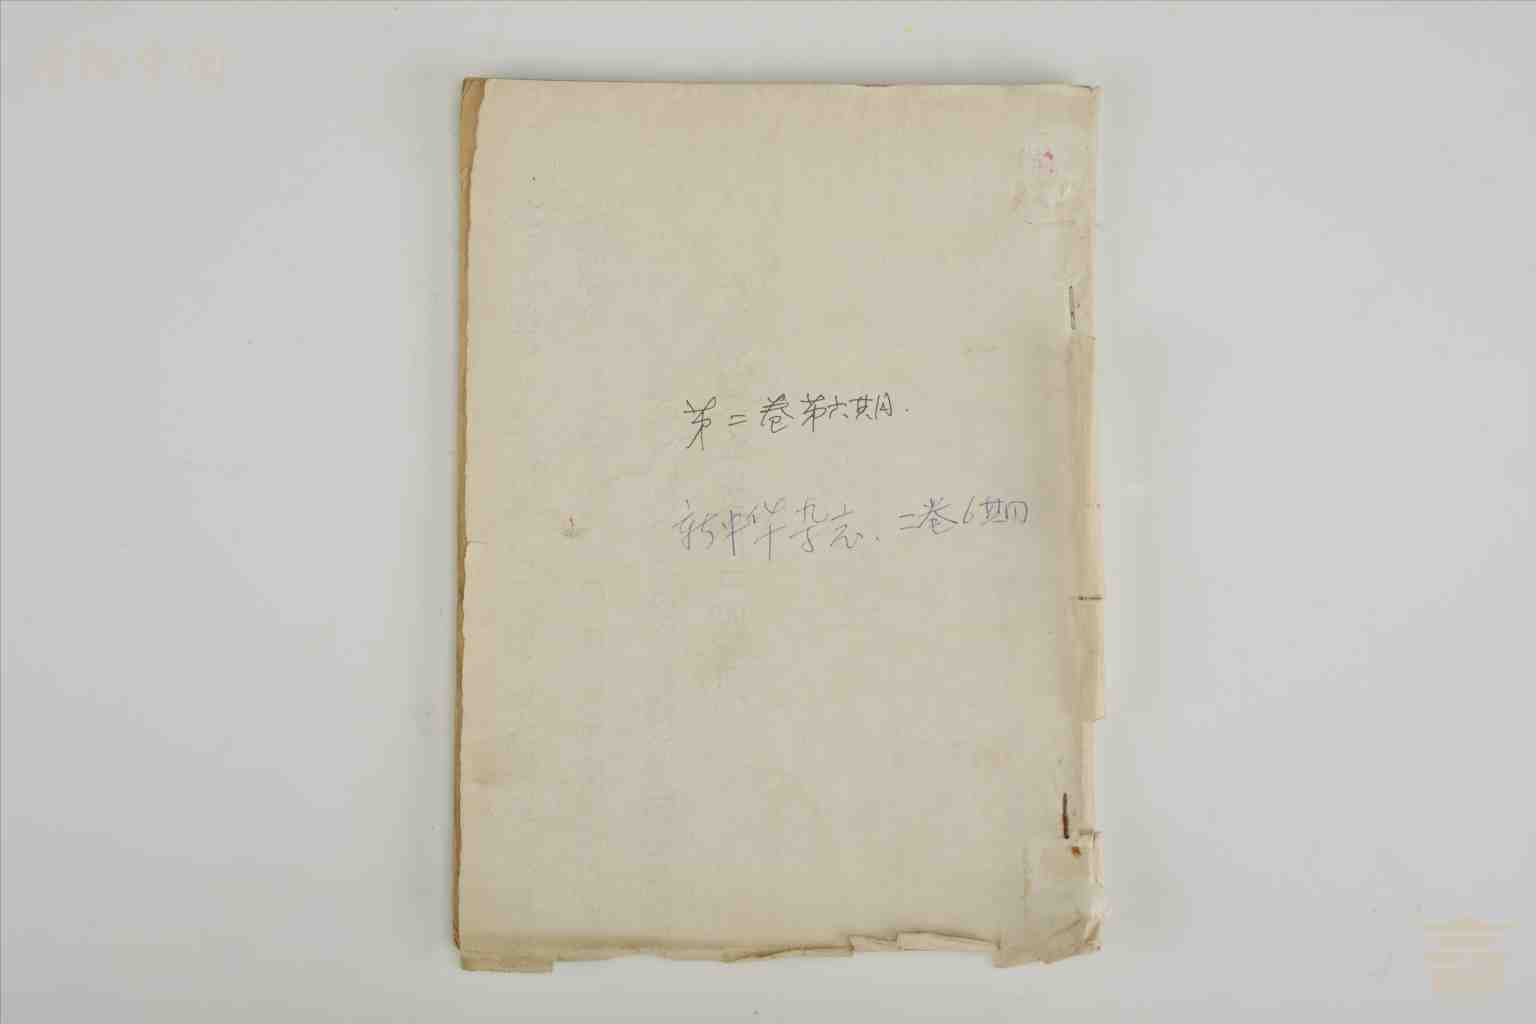 第二卷第六期.
新中华杂志.二卷6期